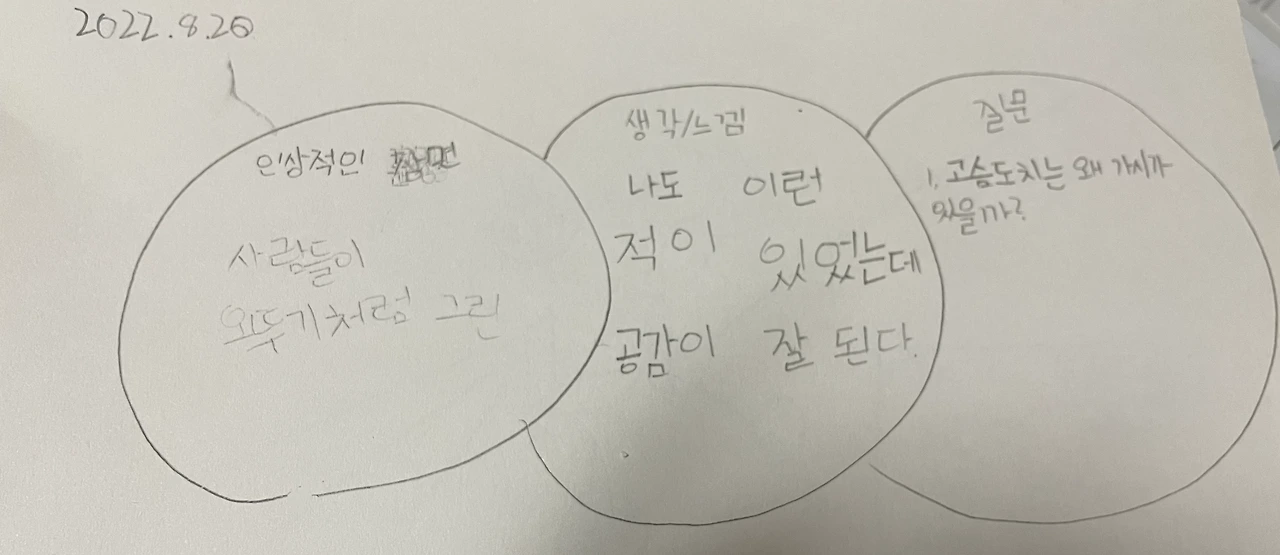 2022.8.26
인상적인 장면
사람들이
오뚜기처럼 그린
생각/느낌
나도 이런
적이 있었는데
공감이 잘 된다.
질문
1. 고슴도치는 왜 가시가
있을까?